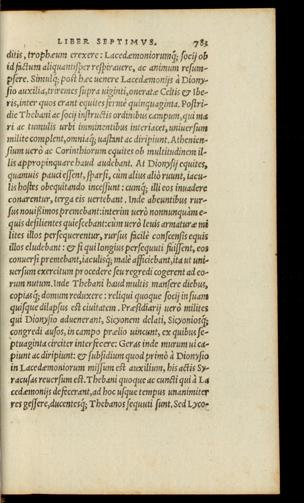 LIBER SEPTIMVS. 783
ditis, trophæum erexere: Lacedæmoniorumq; socij ob
id factum aliquantisper respirauere, ac animum resum-
psere. Simulq; post hæc uenere Lacedæmonijs à Diony-
sio auxilia, triremes supra uiginti, oneratæ Celtis & Ibe-
ris, inter quos erant equites fermè quinquaginta. Postri-
die Thebani ac socij instructis ordinibus campum, qui ma
ri ac tumulis urbi imminentibus interiacet, uniuersum
milite complent, omniaq; uastant ac diripiunt. Athenien-
sium uerò ac Corinthiorum equites ob multitudinem il-
lis appropinquare haud audebant. At Dionysij equites,
quamuis pauci essent, sparsi, cum alius aliò ruunt, iacu-
lis hostes obequitando incessiunt: cumq; illi eos inuadere
conarentur, terga eis uertebant. Inde abeuntibus rur-
sus nouißimos premebant: interim uerò nonnunquàm e-
quis desilientes quiescebant: cum uerò leuis armaturæ mi
lites illos persequerentur, rursus facilè conscensis equis
illos eludebant: & si qui longius persequuti fuissent, eos
conuersi premebant, iaculisq; malè afficiebant, ita ut uni-
uersum exercitum procedere seu regredi cogerent ad eo-
rum nutum. Inde Thebani haud multis mansere diebus,
copiasq; domum reduxere: reliqui quoque socij in suam
quisque dilapsus est ciuitatem. Præstdiarij uerò milites
qui Dionysio aduenerant, Sicyonem delati, Sicyoniosq;
congredi ausos, in campo prælio uincunt, ex quibus se-
ptuaginta circiter interfecere: Geras inde murum ui ca-
piunt ac diripiunt: & subsidium quod primò à Dionysio
in Lacedæmonium missum est auxilium, his actis Sy-
racusas reuersum est. Thebani quoque ac cuncti qui à La
cedæmonijs defecerant, ad hoc usque tempus unanimiter
res gessere, ducentesq; Thebanos sequuti sunt. Sed Lyco-